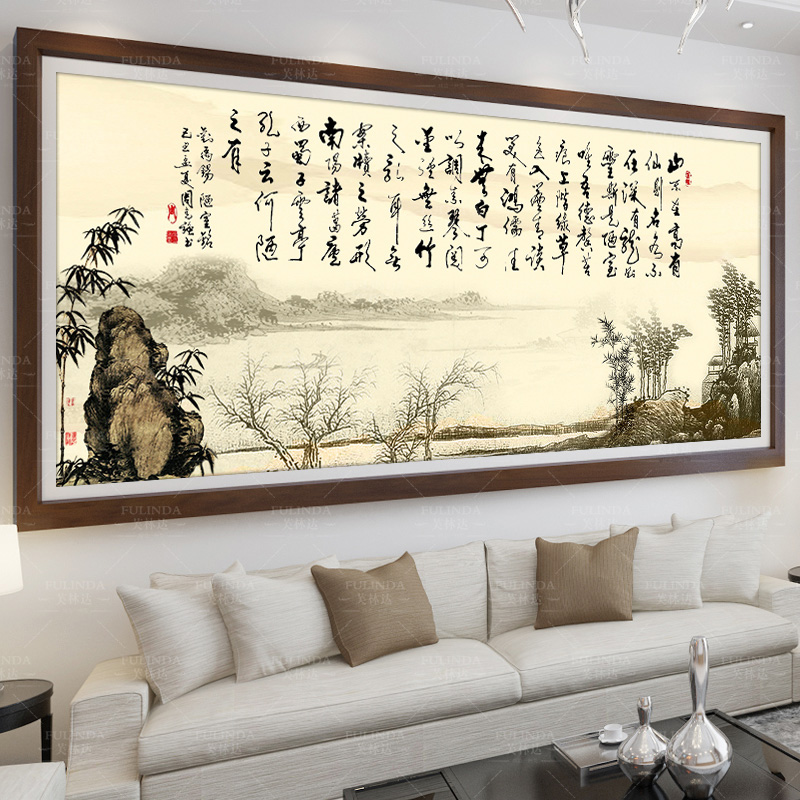 山不在高有
仙則名水不
在深有龍則
靈斯是陋室
唯吾德馨苔
痕上階綠草
色入簾青談
笑有鴻儒往
来無白丁可
以調素琴閱
金經無絲竹
之亂耳無
案牘之勞形
南陽諸葛廬
西蜀子雲亭
孔子云何陋
之有
劉禹錫 陋室銘
己丑孟夏周書
FULINDA
芙林达